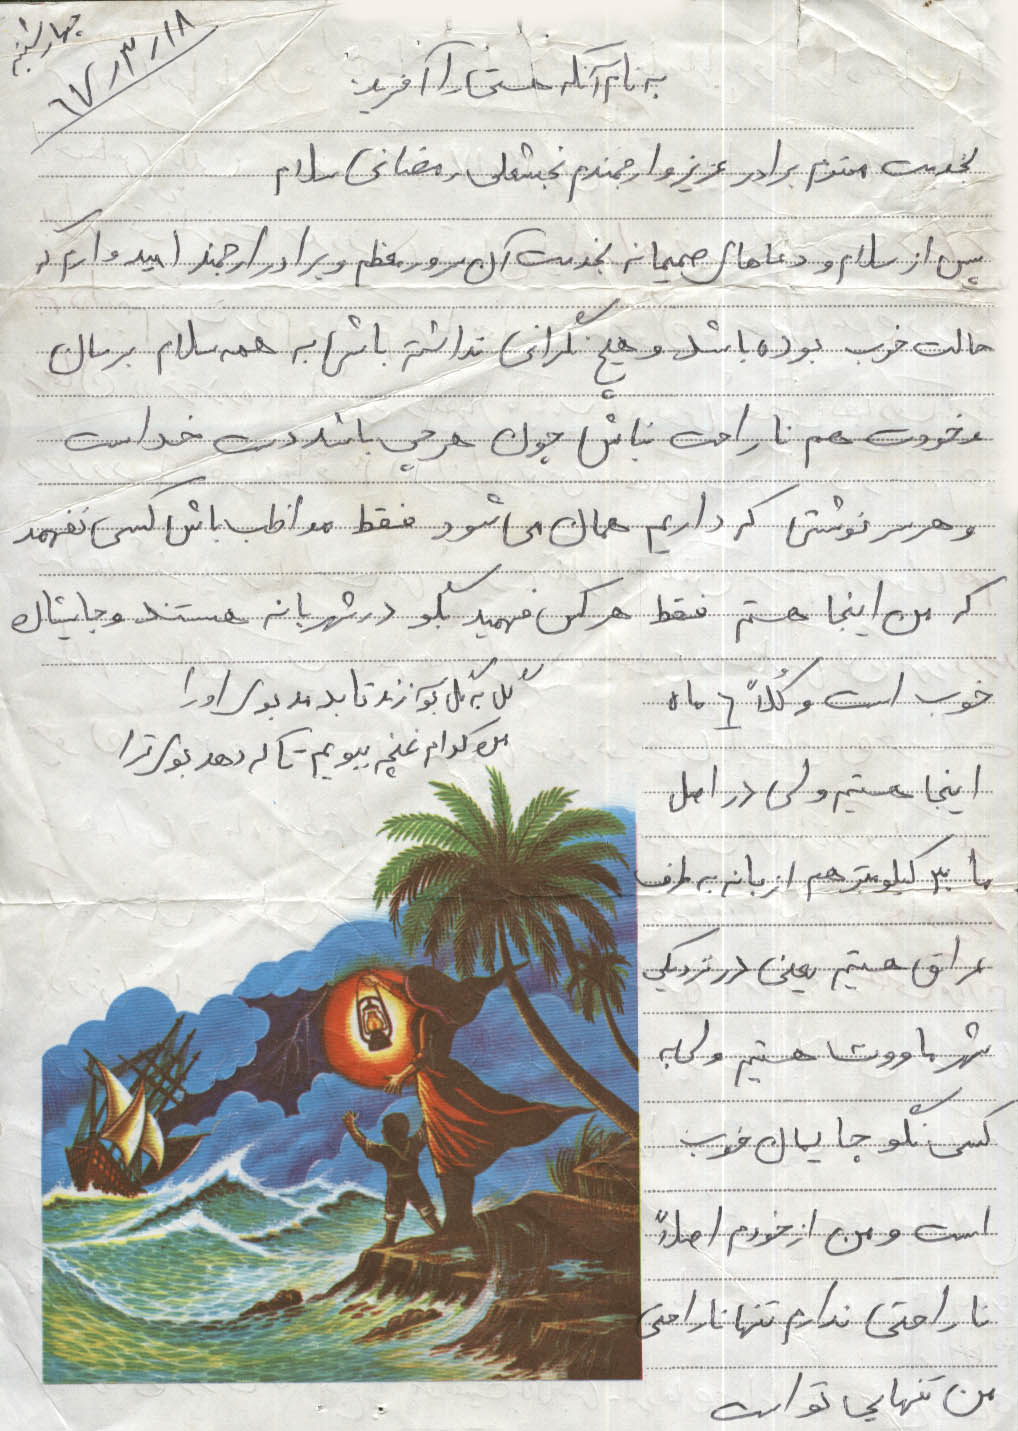 چهارشنبه
۶۷/۳/۱۸
به نام آنکه هستی را آفرید
بخدمت محترم برادر عزیز و ارجمندم نجبشعلی رمضانی سلام
پس از سلام و دعاهای صمیمانه بخدمت آن سرور معظم و برادر ارجمند امیدوارم که
حالت خوب بوده باشد و هیچ نگرانی نداشته باشی به همه سلام برسان
و خودت هم ناراحت نباش چون هر چی باشد دست خداست
و هر سرنوشتی که داریم همان می شود فقط مواظب باش کسی نفهمد
که من اینجا هستم فقط هر کس فهمید بگو در شهر بانه هستند و جایشان
خوب است و کُلاً ۶ ماه
اینجا هستیم ولی در اصل
ما ۳۰ کیلومتر هم از بانه به طرف
عراق هستیم یعنی در نزدیکی
شهر ماووت هستیم ولی به
کسی نگو جایمان خوب
است و من از خودم اصلاً
ناراحتی ندارم تنها ناراحتی
من تنهایی تو است
گل به گل بوسه زند تا بدمد بوی او را
من کدام غنچه ببویم تا که دهد بوی ترا